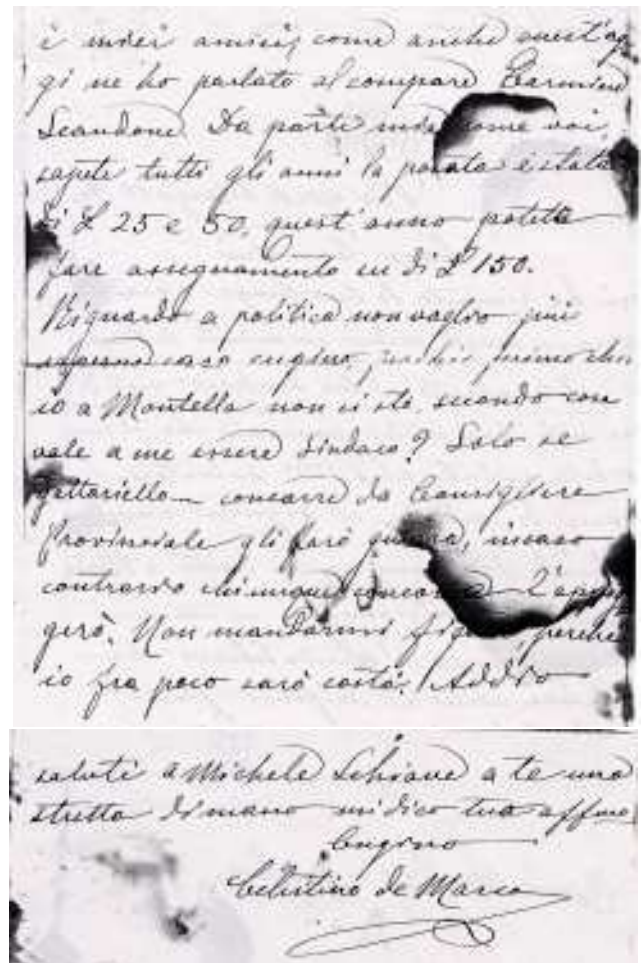 i miei amici, come anche quest'og
gi ne ho parlato al compare Carmine
Scandone. Da parte mia come voi
sapete tutti gli anni la parata è stata
di £ 25 e 50, quest'anno potete
fare assegnamento su di £ 150.
Riguardo a politica non voglio più
caro cugino, perchè primo che
io a Montella non ci sto, secondo cosa
vale a me essere Sindaco? Solo se
concorre da Consigliere
Provinciale gli farò guerra, in caso
contrario chiunque concorre l'appog
gerò. Non mandarmi perchè
io fra poco sarò costà. Addio
saluti a Michele Schiavo a te una
stretta di mano mi dico tuo affmo
Cugino
Celestino de Marco